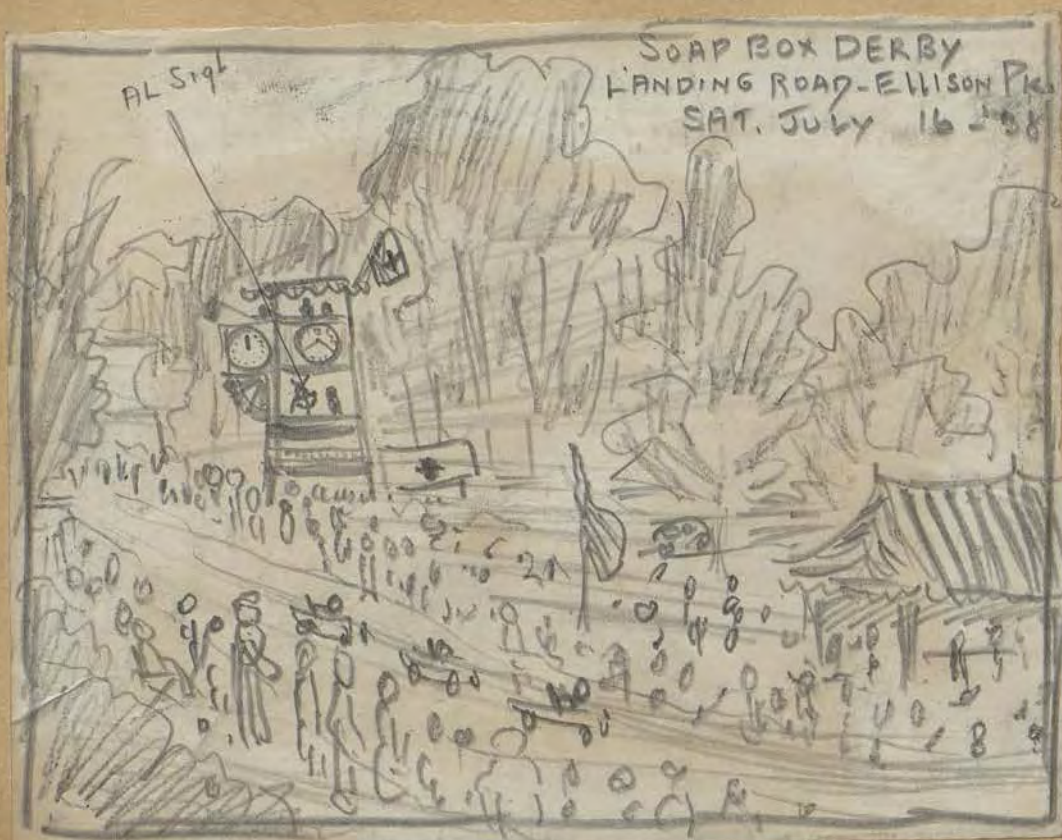 AL Sigl
SOAP BOX DERBY
LANDING ROAD-ELLISON PK.
SAT. JULY 16-38